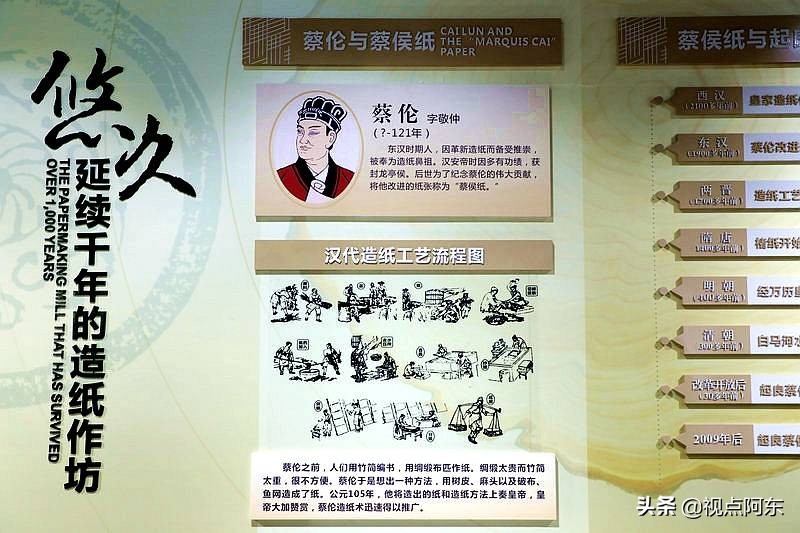 悠久
延续千年的造纸作坊
THE PAPERMAKING MILL THAT HAS SURVIVED
OVER 1,000 YEARS
蔡伦与蔡侯纸
CAI LUN AND
THE "MARQUIS CAI"
PAPER
蔡伦 字敬仲
（?-121年）
东汉时期人，因革新造纸而备受推崇，
被奉为造纸鼻祖。汉安帝时因多有功绩，获
封龙亭侯。后世为了纪念蔡伦的伟大贡献，
将他改进的纸张称为“蔡侯纸。”
汉代造纸工艺流程图
蔡伦之前，人们用竹简编书，用绸缎布匹作纸。绸缎太贵而竹简
太重，很不方便。蔡伦于是想出一种方法，用树皮、麻头以及破布、
鱼网造成了纸。公元105年，他将造出的纸和造纸方法上奏皇帝，皇
帝大加赞赏，蔡伦造纸术迅速得以推广。
蔡侯纸与起
西汉
（2100多年前）
皇家造纸
东汉
（1900多年前）
蔡伦改进
两晋
（1700多年前）
造纸工艺
隋唐
（1400多年前）
楮纸开始
明朝
（400多年前）
经万历
清朝
（300多年前）
白马河水
改革开放后
（30多年前）
起良蔡
2009年后
起良蔡
头条 @视点阿东